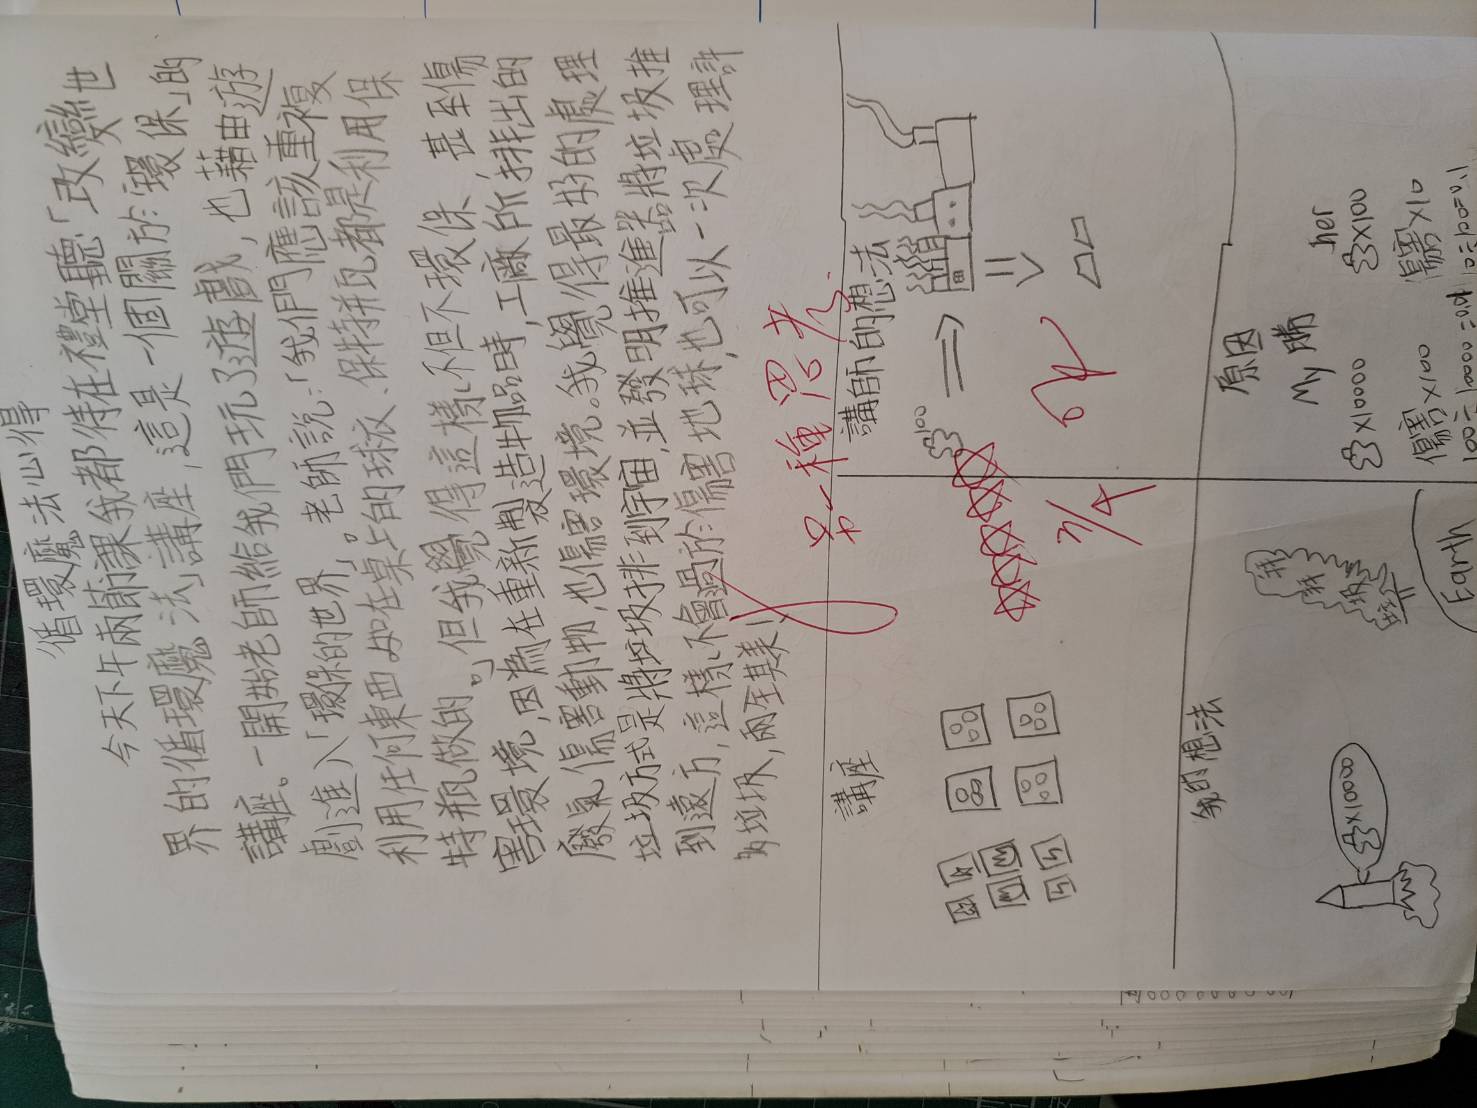 循環魔法心得
今天下午兩節課我都待在禮堂聽「改變世
界的循環魔法」講座,這是一個關於「環保」的
講座。一開始老師給我們玩了遊戲,也藉由遊
戲進入「環保的世界」。老師說:「我們應該重複
利用任何東西,如在桌上的球衣、保特拼瓦都是利用保
特瓶做的。」但我覺得這樣不但不環保,甚至傷
害環境,因為在重新製造物品時,工廠所排出的
廢氣傷害動物,也傷害環境。我覺得最好的處理
垃圾方式是將垃圾排到宇宙,並發明推進器將垃圾推
到遠方,這樣不會過於傷害地球,也可以一次處理許
多垃圾,兩全其美!
另一種思考
講座
講師的想法
x100
2/4
我的想法
x10000
我
我
垃
圾
Earth
原因
My 勝 her
x10000 x100
傷害x100 傷害x10
100÷10000=0.01 10÷100=0.1